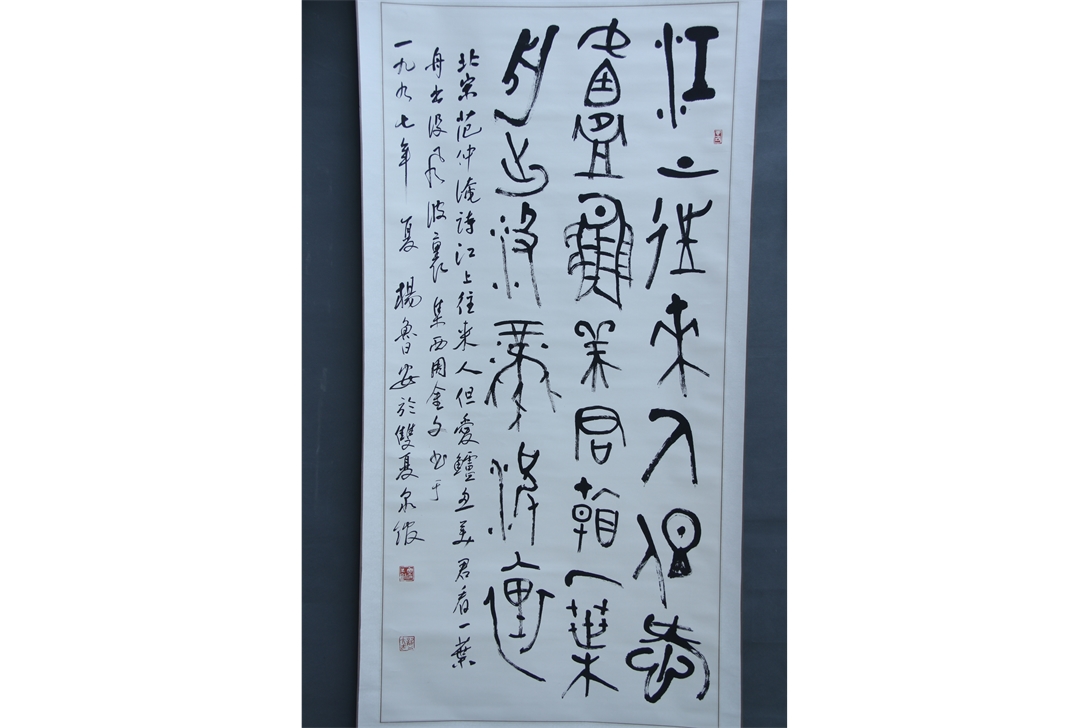 江上往來人但愛
鱸魚美君看一葉
舟出沒風波裏
北宋范仲淹詩江上往来人但愛鱸魚美君看一葉
舟出没風波裏集西周金文書于
一九九七年夏楊魯安於雙夏泉館